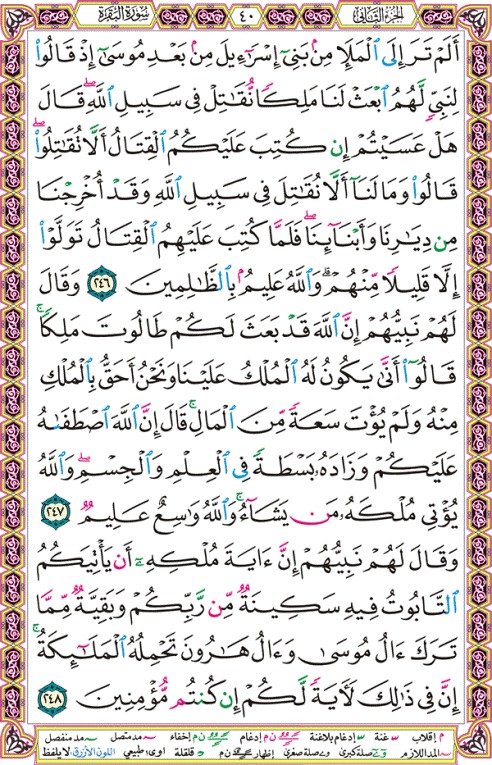 الجزء الثاني ٤٠ سورة البقرة
أَلَمْ تَرَ إِلَى ٱلْمَلَإِ مِنۢ بَنِىٓ إِسْرَٰٓءِيلَ مِنۢ بَعْدِ مُوسَىٰٓ إِذْ قَالُوا۟
لِنَبِىٍّ لَّهُمُ ٱبْعَثْ لَنَا مَلِكًا نُّقَٰتِلْ فِى سَبِيلِ ٱللَّهِ ۖ قَالَ
هَلْ عَسَيْتُمْ إِن كُتِبَ عَلَيْكُمُ ٱلْقِتَالُ أَلَّا تُقَٰتِلُوا۟ ۖ
قَالُوا۟ وَمَا لَنَآ أَلَّا نُقَٰتِلَ فِى سَبِيلِ ٱللَّهِ وَقَدْ أُخْرِجْنَا
مِن دِيَٰرِنَا وَأَبْنَآئِنَا ۖ فَلَمَّا كُتِبَ عَلَيْهِمُ ٱلْقِتَالُ تَوَلَّوْا۟
إِلَّا قَلِيلًا مِّنْهُمْ ۗ وَٱللَّهُ عَلِيمٌۢ بِٱلظَّٰلِمِينَ ٢٤٦ وَقَالَ
لَهُمْ نَبِيُّهُمْ إِنَّ ٱللَّهَ قَدْ بَعَثَ لَكُمْ طَالُوتَ مَلِكًا ۚ
قَالُوٓا۟ أَنَّىٰ يَكُونُ لَهُ ٱلْمُلْكُ عَلَيْنَا وَنَحْنُ أَحَقُّ بِٱلْمُلْكِ
مِنْهُ وَلَمْ يُؤْتَ سَعَةً مِّنَ ٱلْمَالِ ۚ قَالَ إِنَّ ٱللَّهَ ٱصْطَفَىٰهُ
عَلَيْكُمْ وَزَادَهُۥ بَسْطَةً فِى ٱلْعِلْمِ وَٱلْجِسْمِ ۖ وَٱللَّهُ
يُؤْتِى مُلْكَهُۥ مَن يَشَآءُ ۚ وَٱللَّهُ وَٰسِعٌ عَلِيمٌ ٢٤٧
وَقَالَ لَهُمْ نَبِيُّهُمْ إِنَّ ءَايَةَ مُلْكِهِۦٓ أَن يَأْتِيَكُمُ
ٱلتَّابُوتُ فِيهِ سَكِينَةٌ مِّن رَّبِّكُمْ وَبَقِيَّةٌ مِّمَّا
تَرَكَ ءَالُ مُوسَىٰ وَءَالُ هَٰرُونَ تَحْمِلُهُ ٱلْمَلَٰٓئِكَةُ ۚ
إِنَّ فِى ذَٰلِكَ لَءَايَةً لَّكُمْ إِن كُنتُم مُّؤْمِنِينَ ٢٤٨
م إقلاب غنة إدغام بلا غنة إدغام إخفاء مد متصل مد منفصل
المد اللازم صلة كبرى صلة صغرى إظهار قلقلة طبيعي اللون الأزرق لا يلفظ